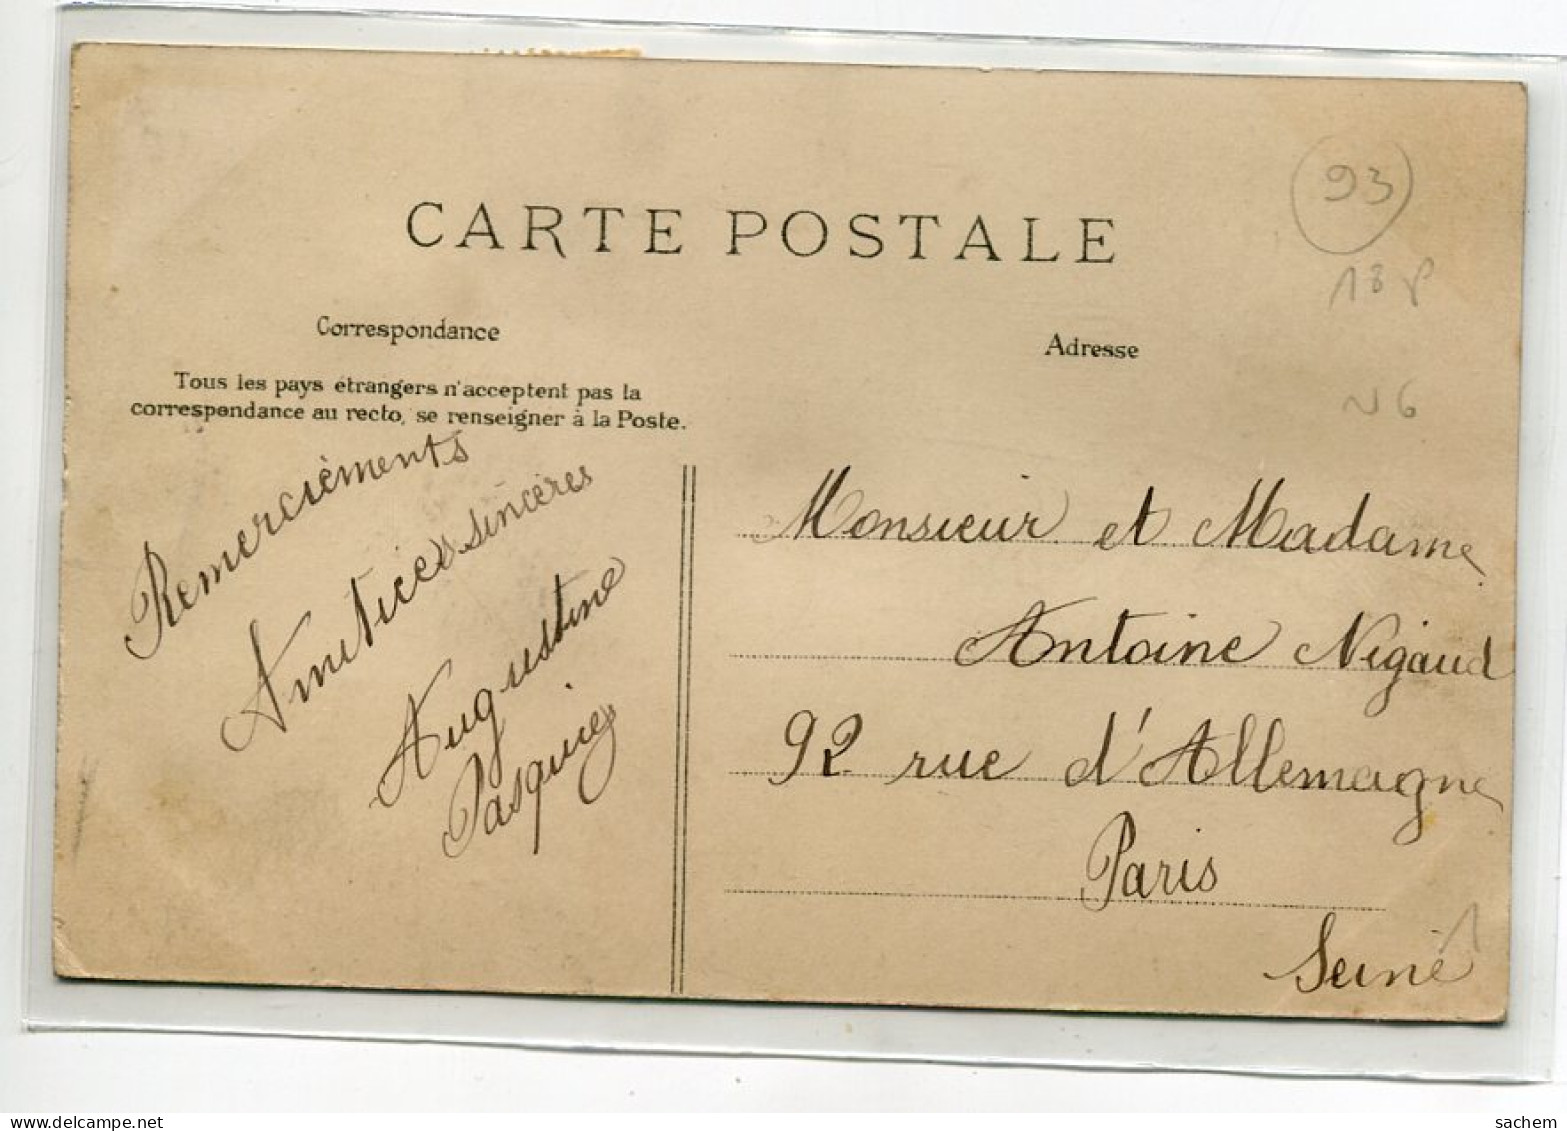 CARTE POSTALE
93
18 P
N 6
Correspondance
Adresse
Tous les pays étrangers n'acceptent pas la
correspondance au recto, se renseigner à la Poste.
Remerciéments
Amitiées sincères
Augustine
Pasquier
Monsieur et Madame
Antoine Nigaud
92 rue d'Allemagne
Paris
Seine
1
www.delcampe.net
sachem